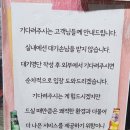 기다려주시는 고객님들께 안내드립니다.
실내에선 대기손님을 받지 않습니다.
대기명단 작성 후 외부에서 기다려주시면
순차적으로 입장 도와드리겠습니다.
기다려주시는 게 힘드시겠지만
드실 때만큼은 쾌적한 환경과 더불어
더 나은 서비스를 제공하기 위함이니